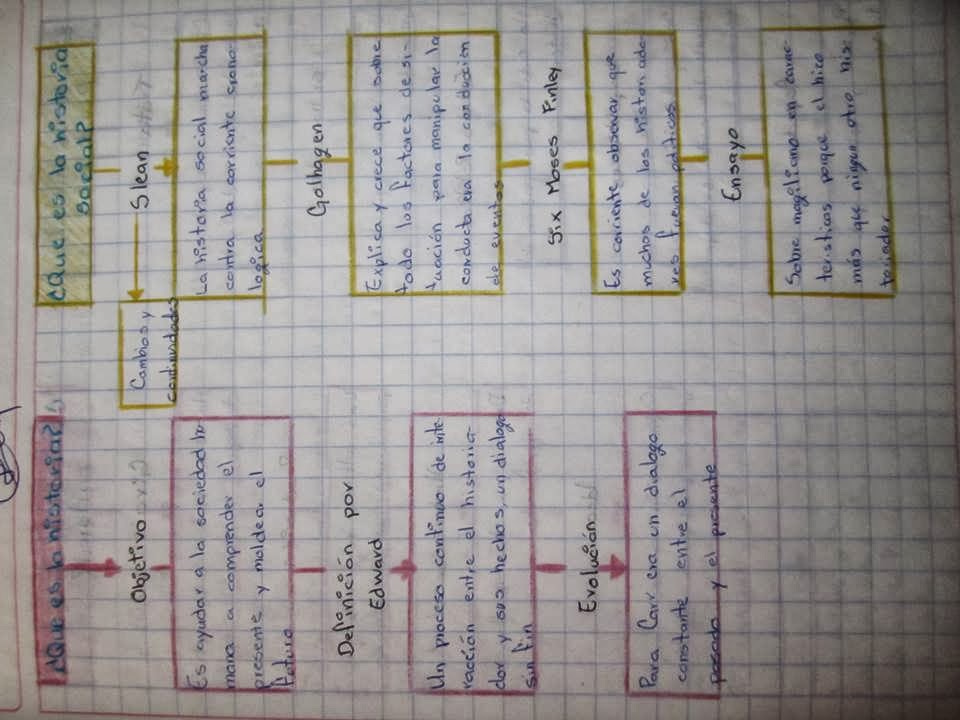 ¿Que es la historia?
Objetivo
Es ayudar a la sociedad hu-
mana a comprender el
presente y moldear el
futuro
Definición por
Edward
Un proceso continuo de inte-
racción entre el historia-
dor y sus hechos, un dialogo
sin fin
Evolución
Para Carr era un dialogo
constante entre el
pasado y el presente
¿Que es la historia
social?
Slean
Cambios y
continuidades
La historia social marcha
contra la corriente crono-
logica
Golhagen
Explica y crece que sobre
todo los factores de si-
tuación para manipular la
conducta era la conducción
de eventos
Six Moses Finley
Es corriente observar que
muchos de los historiado-
res fueran politicos
Ensayo
Sobre
en carac-
teristicos porque el hizo
más que ningun otro his-
toriador